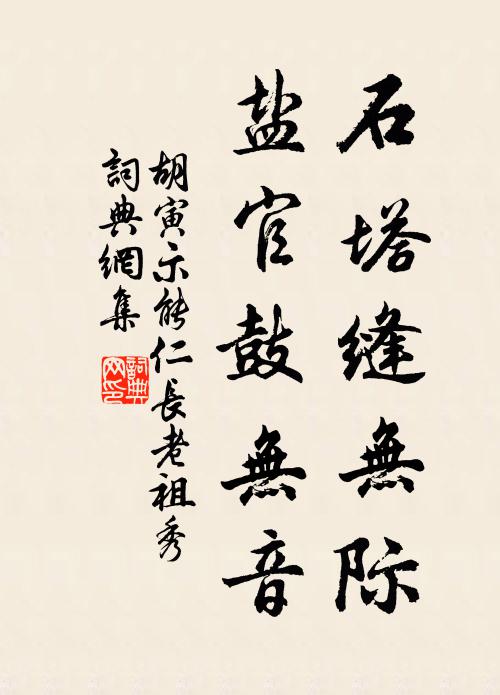 石塔缝無际
盐官鼓無音
胡寅示能仁長老祖秀
詞典網集
詞典网印